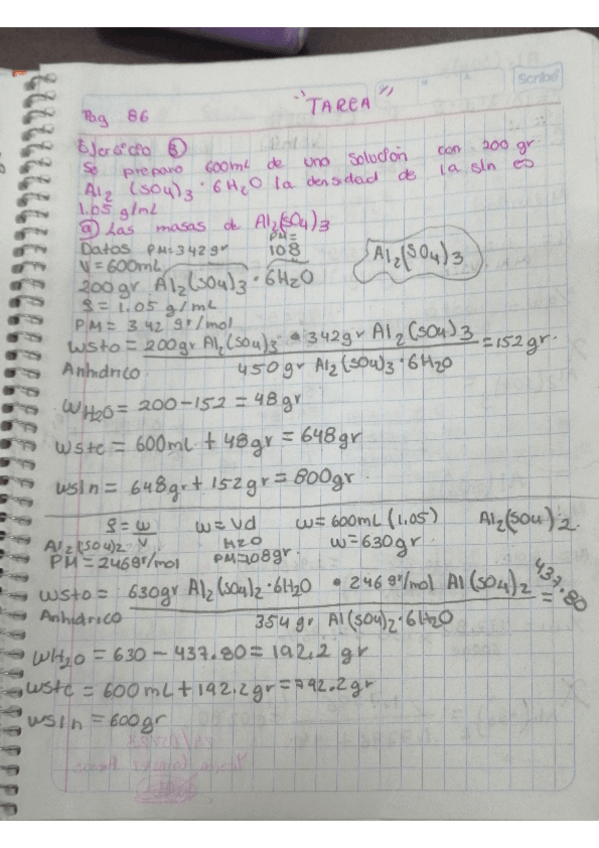 Scribe
"TAREA"
Pag 86
Ejercicio 3
Se preparo 600mL de una solución con 200 gr
Al2 (SO4)3 · 6H2O la densidad de la sln es
1.05 g/mL
a) Las masas de Al2(SO4)3
Datos PM=342gr PM= 108
V=600mL
200gr Al2(SO4)3 · 6H2O
Al2(SO4)3
ρ = 1.05 g/mL
PM = 342 gr/mol
Wsto = 200gr Al2(SO4)3 • 342gr Al2(SO4)3 = 152 gr.
Anhidrico 450gr Al2(SO4)3 · 6H2O
WH2O = 200-152 = 48gr
Wstc = 600mL + 48gr = 648gr
Wsln = 648gr + 152gr = 800gr.
ρ = w/v w = Vd w = 600mL (1.05) Al2(SO4)2.
Al2(SO4)2 H2O w=630gr.
PM=246gr/mol PM=108gr.
Wsto = 630gr Al2(SO4)2·6H2O • 246gr/mol Al(SO4)2 = 437.80
Anhidrico 354gr Al(SO4)2·6H2O
WH2O = 630 - 437.80 = 192.2 gr
Wstc = 600mL + 192.2gr = 792.2gr
Wsln = 600gr